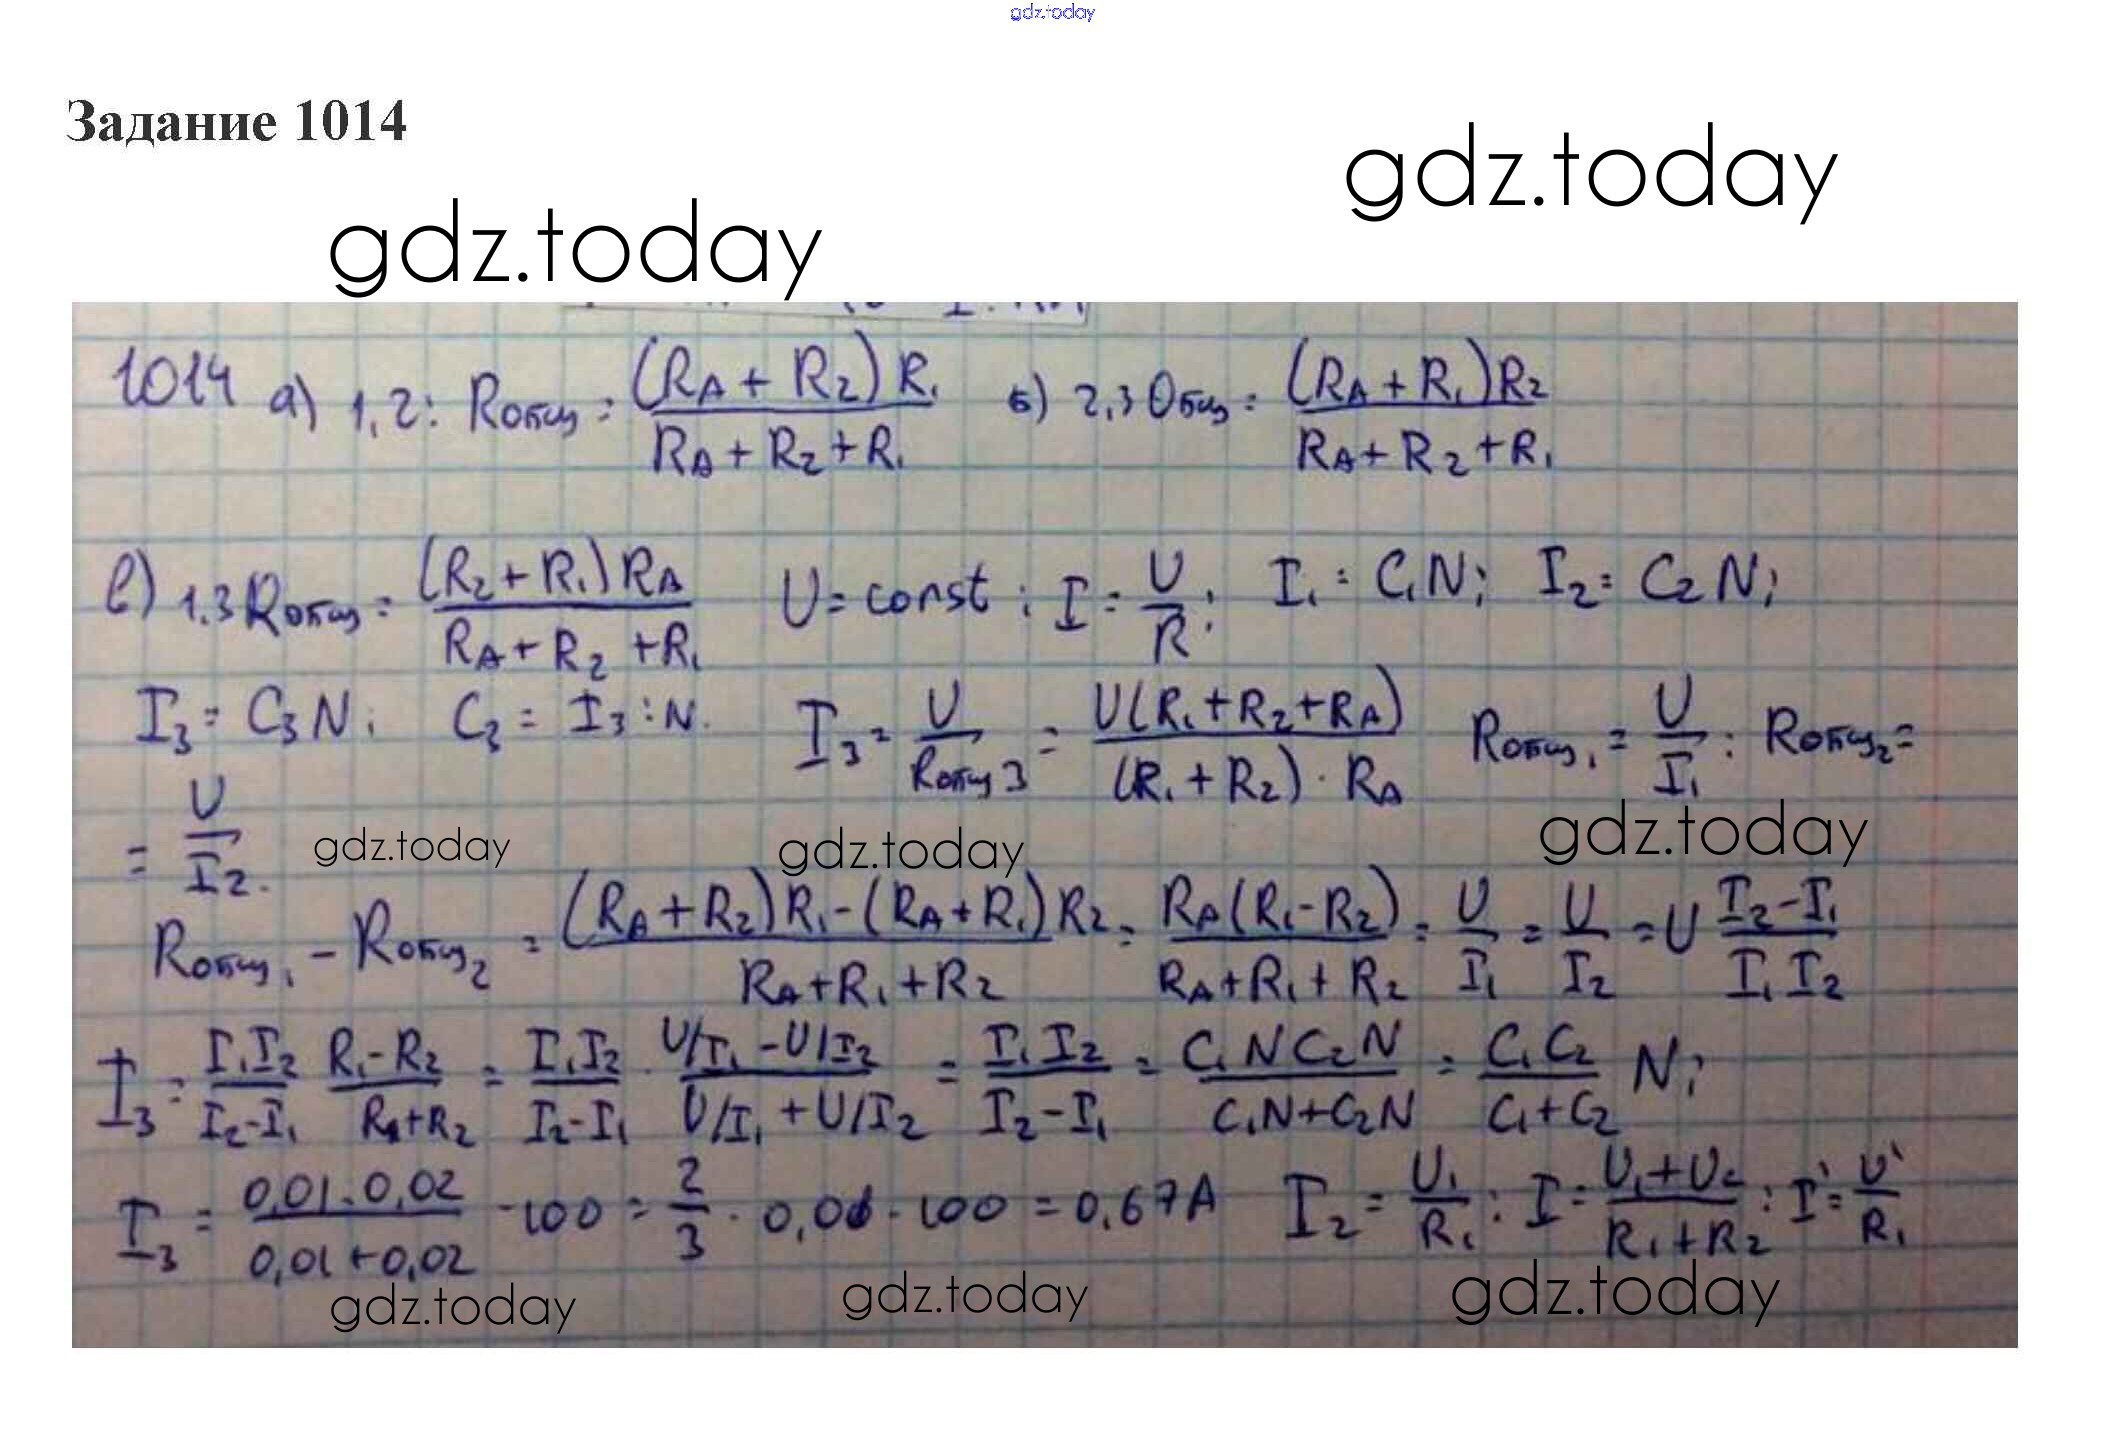 gdz.today
Задание 1014
gdz.today
gdz.today
1014 а) 1,2: Rобщ = (RA + R2) R1 / RA + R2 + R1 б) 2,3 Общ = (RA + R1) R2 / RA + R2 + R1
в) 1.3 Rобщ = (R2 + R1) RA / RA + R2 + R1 U = const ; I = U / R ; I1 = C1N; I2 = C2N;
I3 = C3N; C3 = I3 : N. I3 = U / Rобщ3 = U(R1 + R2 + RA) / (R1 + R2) · RA Rобщ1 = U / I1 : Rобщ2 =
= U / I2.
gdz.today gdz.today gdz.today
Rобщ1 - Rобщ2 = (RA + R2) R1 - (RA + R1) R2 / RA + R1 + R2 = RA (R1 - R2) / RA + R1 + R2 = U / I1 = U / I2 = U I2 - I1 / I1 I2
I3 = I1 I2 / I2 - I1 R1 - R2 / R1 + R2 = I1 I2 / I2 - I1 · U/I1 - U/I2 / U/I1 + U/I2 = I1 I2 / I2 - I1 = C1 N C2 N / C1N + C2N = C1 C2 / C1 + C2 N;
I3 = 0,01 · 0,02 / 0,01 + 0,02 · 100 = 2 / 3 · 0,01 · 100 = 0,67 A I2 = U1 / R1 : I = U1 + U2 / R1 + R2 : I' = U' / R1
gdz.today gdz.today gdz.today